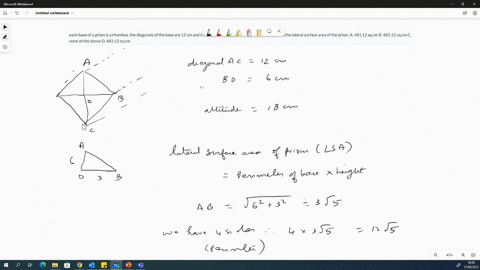 Untitled whiteboard
each base of a prism is a rhombus, the diagonals of the base are 12 cm and 6 the lateral surface area of the prism. A. 481.12 sq cm B. 485.12 sq.cm C.
none of the above D. 483.12 sq.cm
A
B
D
C
diagonal AC = 12 cm
BD = 6 cm
altitude = 18 cm
A
6
O 3 B
lateral surface area of prism (LSA)
= perimeter of base x height
AB = √6²+3² = 3√5
we have 4 sides ∴ 4 x 3√5 = 12√5
(perimeter)